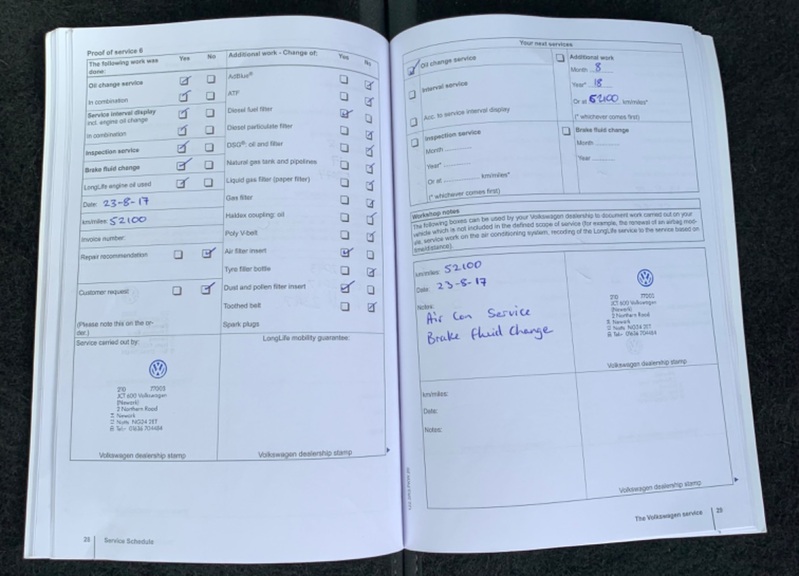 Proof of service 6
The following work was
done:
Yes
No
Oil change service
In combination
Service interval display
incl. engine oil change
In combination
Inspection service
Brake fluid change
LongLife engine oil used
Date: 23-8-17
km/miles: 52100
Invoice number:
Repair recommendation
Customer request:
(Please note this on the or-
der.)
Additional work - Change of:
Yes
No
AdBlue®
ATF
Diesel fuel filter
Diesel particulate filter
DSG®: oil and filter
Natural gas tank and pipelines
Liquid gas filter (paper filter)
Gas filter
Haldex coupling: oil
Poly V-belt
Air filter insert
Tyre filler bottle
Dust and pollen filter insert
Toothed belt
Spark plugs
Service carried out by:
JCT 600 Volkswagen
(Newark)
2 Northern Road
Newark
Notts NG24 2ET
Tel:- 01636 704484
Volkswagen dealership stamp
LongLife mobility guarantee:
Volkswagen dealership stamp
Service Schedule
Your next services
Oil change service
Interval service
Acc. to service interval display
Inspection service
Month
Year*
Or at km/miles*
(* whichever comes first)
Additional work
Month 8
Year* 18
Or at 62100 km/miles*
(* whichever comes first)
Brake fluid change
Month
Year
Workshop notes
The following boxes can be used by your Volkswagen dealership to document work carried out on your
vehicle which is not included in the defined scope of service (for example, the renewal of an airbag mod-
ule, service work on the air conditioning system, recoding of the LongLife service to the service based on
time/distance).
km/miles: 52100
Date: 23-8-17
Notes:
Air Con Service
Brake Fluid Change
JCT 600 Volkswagen
(Newark)
2 Northern Road
Newark
Notts NG24 2ET
Tel:- 01636 704484
Volkswagen dealership stamp
km/miles:
Date:
Notes:
Volkswagen dealership stamp
The Volkswagen service